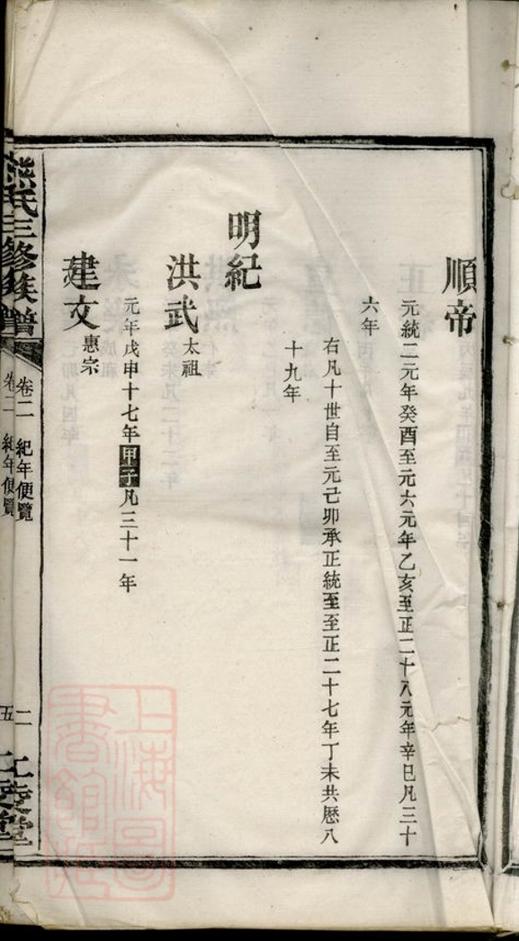 順帝
元統二元年癸酉至元六元年乙亥至正二十八元年辛巳凡三十
六年
右凡十世自至元己卯承正統至至正二十七年丁未共歷八
十九年
明紀
洪武太祖
元年戊申十七年甲子凡三十一年
建文惠宗
熊氏三修族譜
卷二 紀年便覽
卷二 紀年便覽
二
五
江陵堂
上海圖書館藏